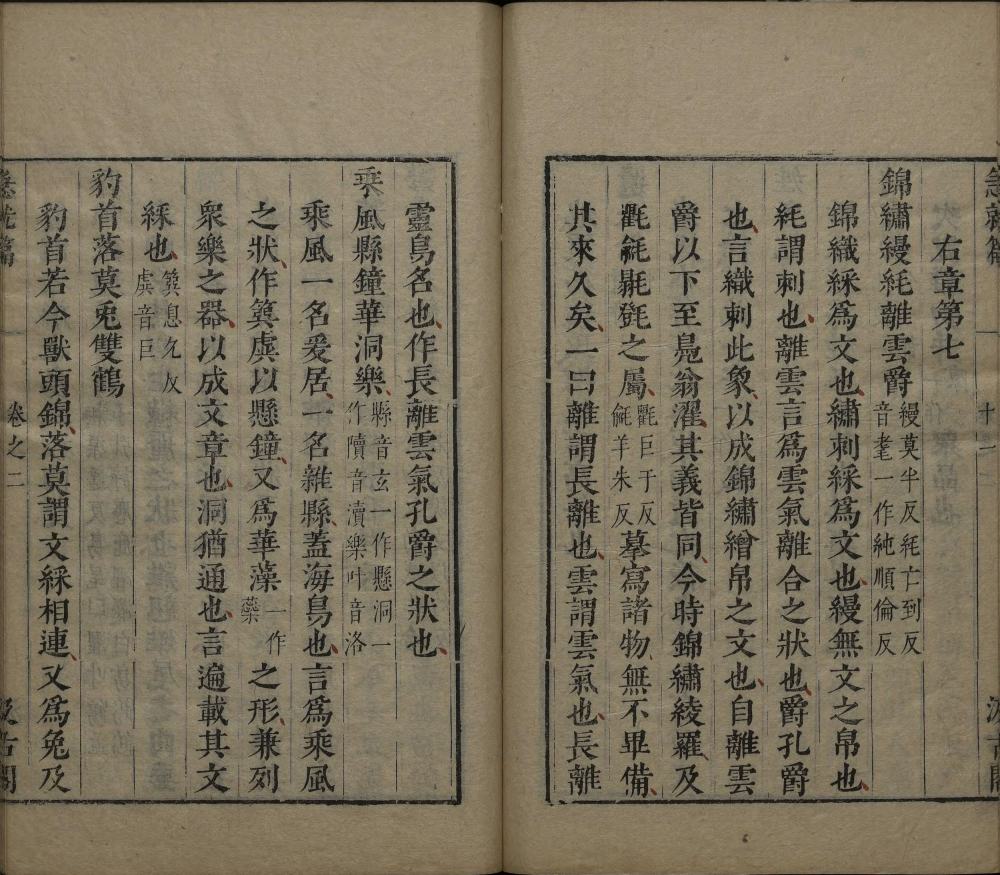 急就篇
十一
汲古閣
右章第七
錦繡縵𥿫離雲爵縵莫半反𥿫亡到反
音耄一作純順倫反
錦織綵爲文也繡刺綵爲文也縵無文之帛也
𥿫謂刺也離雲言爲雲氣離合之狀也爵孔爵
也言織刺此象以成錦繡繒帛之文也自離雲
爵以下至鳧翁濯其義皆同今時錦繡綾羅及
氍毹㲣㲪之屬氍巨于反
毹羊朱反摹寫諸物無不畢備
其來久矣一曰離謂長離也雲謂雲氣也長離
靈鳥名也作長離雲氣孔爵之狀也
乘風縣鐘華洞樂縣音玄一作懸洞一
作隫音瀆樂叶音洛
乘風一名爰居一名雜縣蓋海鳥也言爲乘風
之狀作簨虡以懸鐘又爲華藻一作
蘂之形兼列
衆樂之器以成文章也洞猶通也言遍載其文
綵也簨息允反
虡音巨
豹首落莫兎雙鶴
豹首若今獸頭錦落莫謂文綵相連又爲兔及
急就篇
卷之二
汲古閣